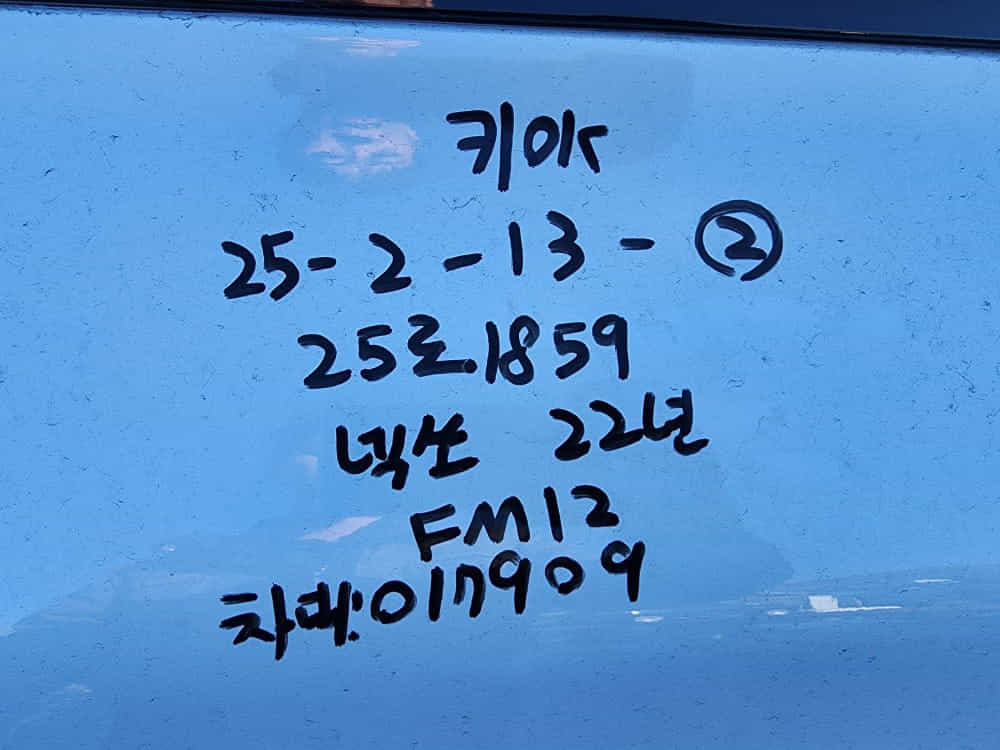 키아
25-2-13-②
25로.1859
넥쏘 22년
FM12
차대:017909